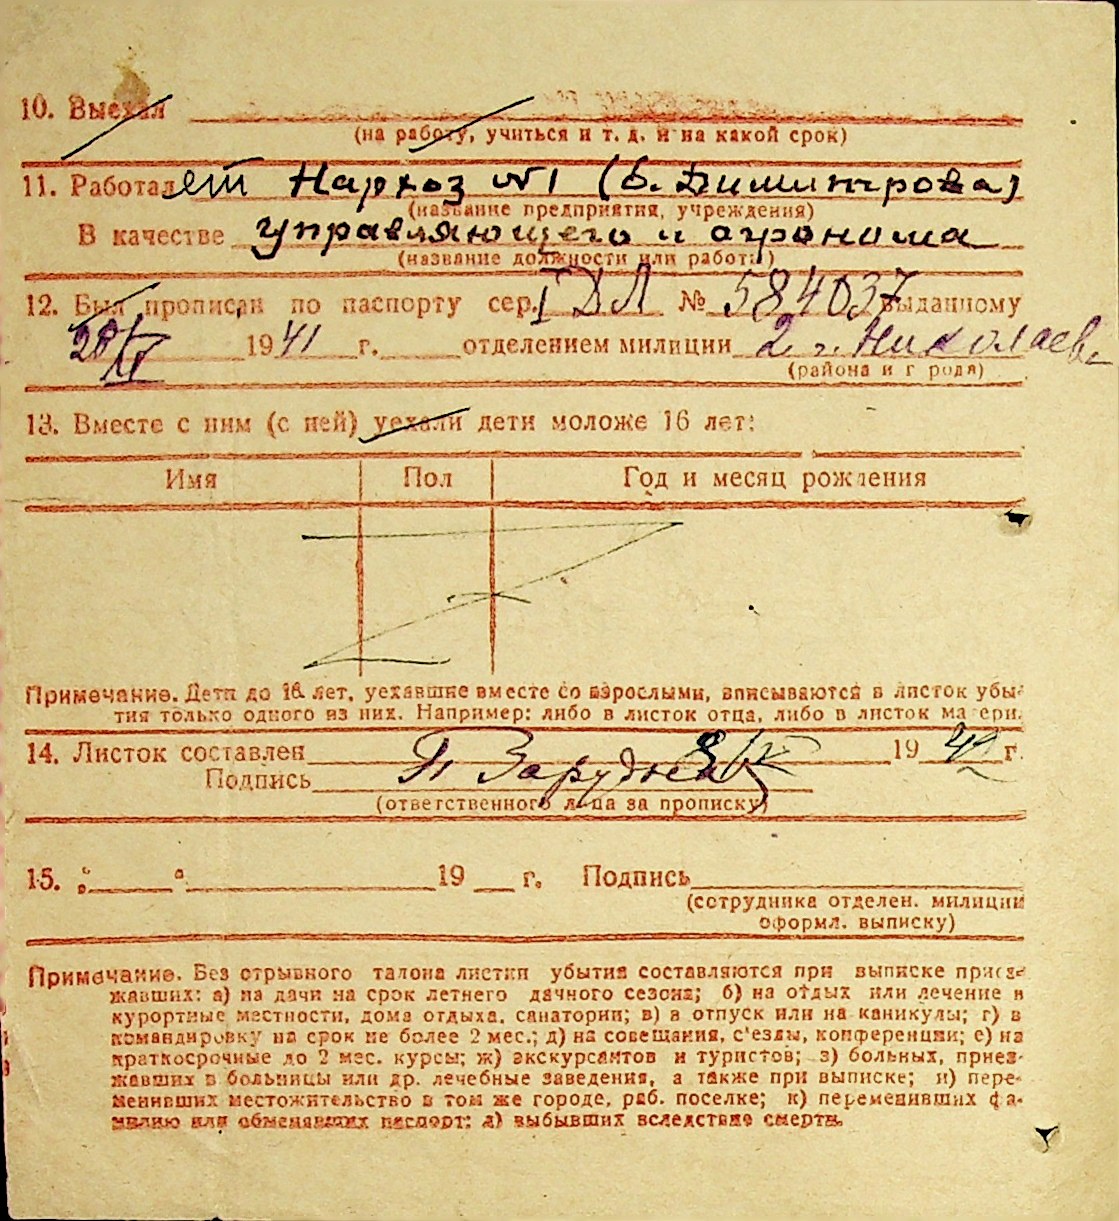 10. Выехал
(на работу, учиться и т. д. и на какой срок)
11. Работает Нархоз №1 (б. Димитрова)
(название предприятия, учреждения)
В качестве управляющего и агронома
(название должности или работы)
12. Был прописан по паспорту сер. I ДЛ № 584037 выданному
1941 г. отделением милиции 2 г. Николаев
(района и города)
13. Вместе с ним (с ней) уехали дети моложе 16 лет:
Имя Пол Год и месяц рождения
Примечание. Дети до 16 лет, уехавшие вместе со взрослыми, вписываются в листок убы-
тия только одного из них. Например: либо в листок отца, либо в листок матери.
14. Листок составлен 8/X 1942 г.
Подпись
(ответственного лица за прописку)
15. „ “ 19 г. Подпись
(сотрудника отделен. милиции
оформл. выписку)
Примечание. Без отрывного талона листки убытия составляются при выписке приез-
жавших: а) на дачи на срок летнего дачного сезона; б) на отдых или лечение в
курортные местности, дома отдыха, санатории; в) в отпуск или на каникулы; г) в
командировку на срок не более 2 мес.; д) на совещания, с'езды, конференции; е) на
краткосрочные до 2 мес. курсы; ж) экскурсантов и туристов; з) больных, приез-
жавших в больницы или др. лечебные заведения, а также при выписке; и) пере-
менивших местожительство в том же городе, раб. поселке; к) переменивших фа-
милию или обменявших паспорт; л) выбывших вследствие смерти.